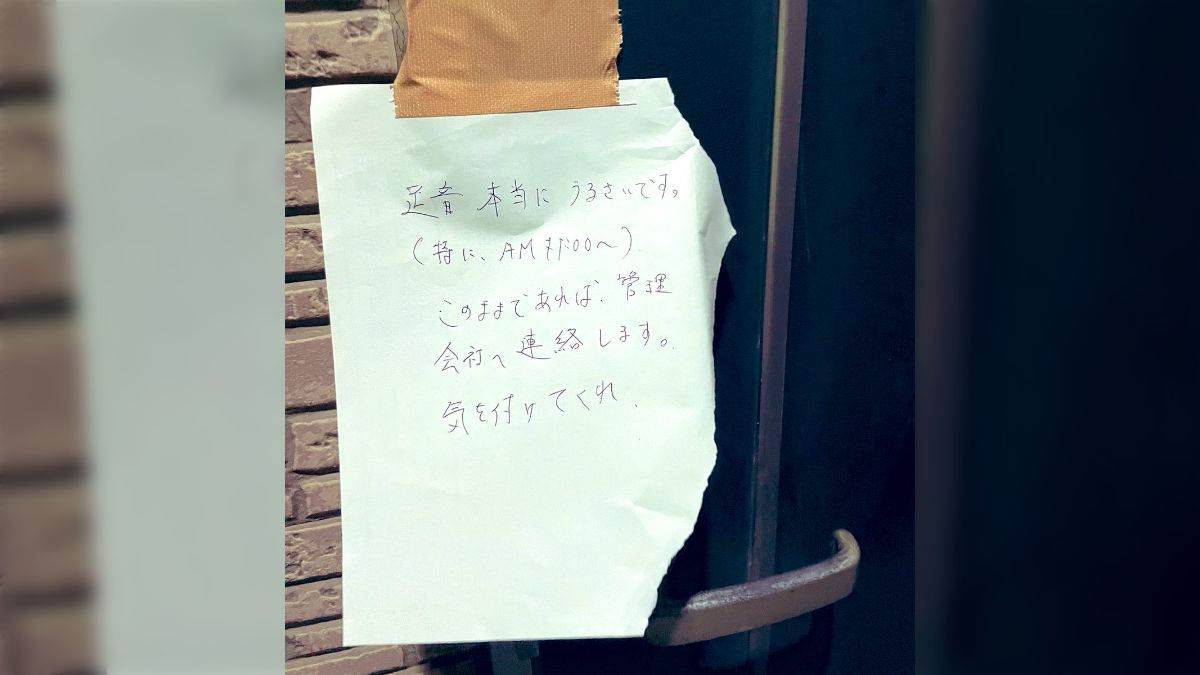 足音 本当に うるさいです。
(特に、AM :00〜)
このままであれば、管理
会社へ連絡します。
気を付けてくれ.